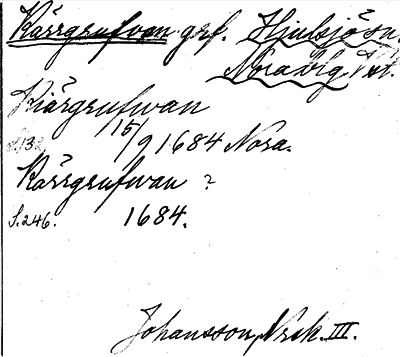 Kärrgrufvan grf. Hjulsjö sn.
Nora blg. Vstm.
Kiärgrufwan
S.132. 15/9 1684 Nora.
Kärrgrufwan ?
S.246. 1684.
Johansson, Nrsk. III.